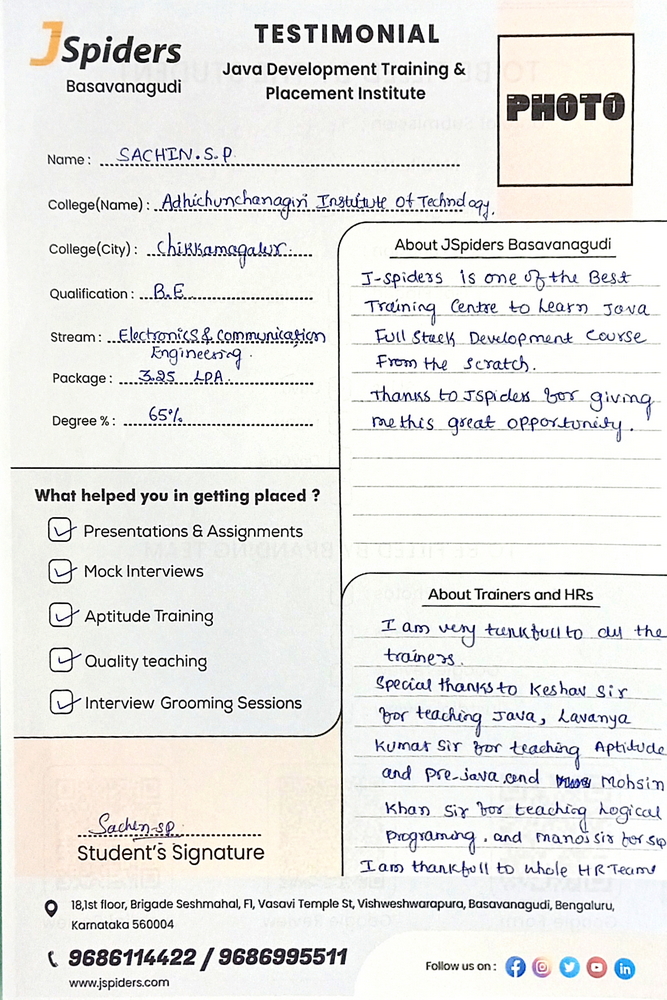 JSpiders
Basavanagudi
TESTIMONIAL
Java Development Training &
Placement Institute
PHOTO
Name : SACHIN.S.P
College(Name) : Adhichunchanagiri Institute Of Technology.
College(City) : Chikkamagalur.
Qualification : B.E
Stream : Electronics & Communication
Engineering.
Package : 3.25 LPA.
Degree % : 65%
What helped you in getting placed ?
Presentations & Assignments
Mock Interviews
Aptitude Training
Quality teaching
Interview Grooming Sessions
Sachin.sp
Student's Signature
About JSpiders Basavanagudi
J-spiders is one of the Best
Training Centre to Learn Java
Full Stack Development Course
From the Scratch.
Thanks to JSpiders for giving
me this great opportunity.
About Trainers and HRs
I am very tankfull to all the
trainers.
Special thanks to Keshav Sir
for teaching Java, Lavanya
Kumar Sir for teaching Aptitude
and Pre-java and Mohsin
Khan Sir for teaching Logical
Programing. and manoj sir for sup
I am thankfull to whole HR Team
18,1st floor, Brigade Seshmahal, F1, Vasavi Temple St, Vishweshwarapura, Basavanagudi, Bengaluru,
Karnataka 560004
9686114422 / 9686995511
www.jspiders.com
Follow us on :